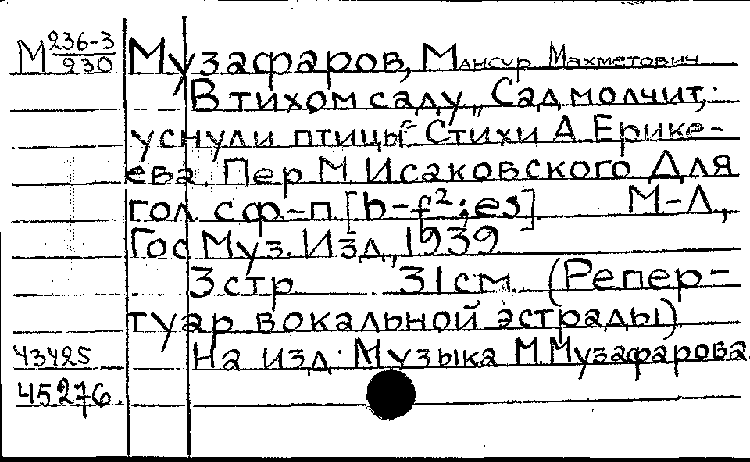 М 236-3/930 Музафаров, Мансур Махметович
В тихом саду „Сад молчит,
уснули птицы" Стихи А. Ерике-
ева. Пер М. Исаковского Для
гол. с ф-п. [b-f²; es]. М-Л.,
Гос. Муз. Изд., 1939
3 стр. 31 см. (Репер-
туар вокальной эстрады)
43425 На изд: Музыка М. Музафарова
45276.